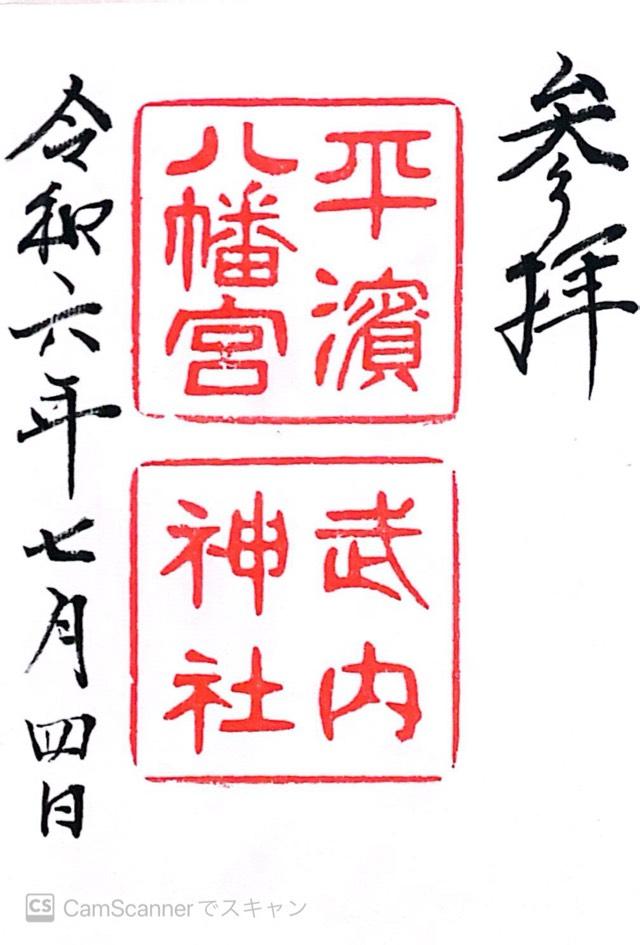 参拝
平濱
八幡宮
武内
神社
令和六年七月四日
CS CamScannerでスキャン